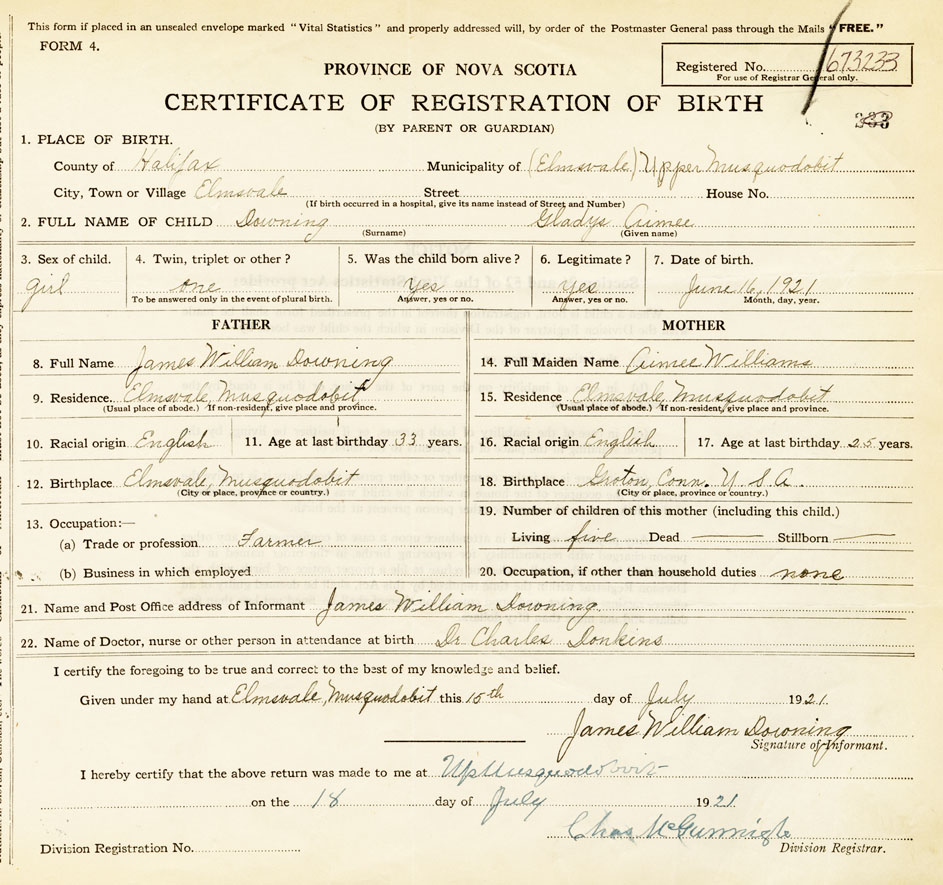 This form if placed in an unsealed envelope marked "Vital Statistics" and properly addressed will, by order of the Postmaster General pass through the Mails "FREE."
FORM 4.
Registered No. 673233
For use of Registrar General only.
PROVINCE OF NOVA SCOTIA
CERTIFICATE OF REGISTRATION OF BIRTH
(BY PARENT OR GUARDIAN)
1. PLACE OF BIRTH.
County of Halifax Municipality of (Elmsvale) Upper Musquodobit
City, Town or Village Elmsvale Street House No.
(If birth occurred in a hospital, give its name instead of Street and Number)
2. FULL NAME OF CHILD Downing Gladys Aimee
(Surname) (Given name)
3. Sex of child. 4. Twin, triplet or other? 5. Was the child born alive? 6. Legitimate? 7. Date of birth.
girl one Yes Yes June 16, 1921
To be answered only in the event of plural birth. Answer, yes or no. Answer, yes or no. Month, day, year.
FATHER MOTHER
8. Full Name James William Downing 14. Full Maiden Name Aimee Williams
9. Residence. Elmsvale, Musquodobit 15. Residence Elmsvale, Musquodobit
(Usual place of abode.) If non-resident, give place and province. (Usual place of abode.) If non-resident, give place and province.
10. Racial origin English 11. Age at last birthday 33 years. 16. Racial origin English 17. Age at last birthday 25 years.
12. Birthplace Elmsvale, Musquodobit 18. Birthplace Groton, Conn. U.S.A.
(City or place, province or country.) (City or place, province or country.)
13. Occupation:— 19. Number of children of this mother (including this child.)
(a) Trade or profession Farmer Living five Dead — Stillborn —
(b) Business in which employed 20. Occupation, if other than household duties none
21. Name and Post Office address of Informant James William Downing
22. Name of Doctor, nurse or other person in attendance at birth Dr. Charles Donkins
I certify the foregoing to be true and correct to the best of my knowledge and belief.
Given under my hand at Elmsvale, Musquodobit this 15th day of July 1921.
James William Downing
Signature of Informant.
I hereby certify that the above return was made to me at Up Musquodoboit
on the 18 day of July 1921
Chas McGunnigle
Division Registration No. Division Registrar.